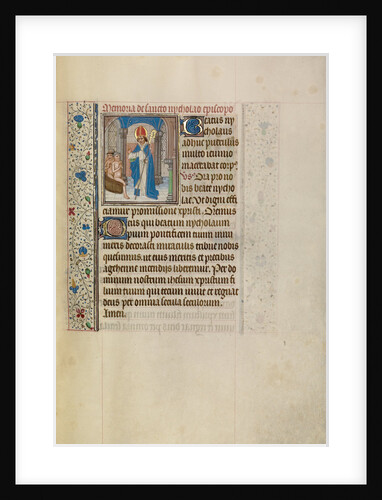 Memoria de sancto nycholao episcopo
Beatus ny
cholaus
adhuc puerulus
multo ieiunio
macerabat corpꝰ
Vs Ora pro no
bis beate nycho
lae Vt digni effi
ciamur promissione xpristi Oremus
Deus qui beatum nycholaum
pium pontificem tuum innu
meris decorasti miraculis tribue nobis
quesumus ut eius meritis et precibus
a gehenne incendijs liberemur Per do
minum nostrum ihesum xpristum fi
lium tuum qui tecum viuit et regnat
deus per omnia secula seculorum
Amen